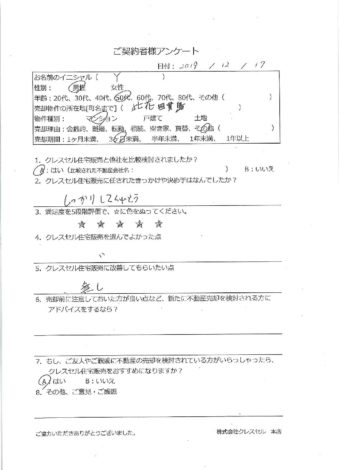 ご契約者様アンケート
日付: 2019 / 12 / 17
お名前のイニシャル ( Y )
性別: 男性 女性
年齢: 20代、30代、40代、50代、60代、70代、80代、その他 ( )
売却物件の所在地[町名まで] (
物件種別: マンション 戸建て 土地
売却理由: 金銭的、離婚、転勤、相続、住替え、買替、その他 ( )
売却期間: 1ヶ月未満、3ヶ月未満、半年未満、1年未満、1年以上
1. クレスセル住宅販売と他社を比較検討されましたか?
A:はい (比較された不動産会社名: ) B:いいえ
2. クレスセル住宅販売に任されたきっかけや決め手はなんでしたか?
しっかりしてそう
3. 満足度を5段階評価で、☆に色をぬってください。
☆ ☆ ☆ ☆ ☆
4. クレスセル住宅販売を選んでよかった点
5. クレスセル住宅販売に改善してもらいたい点
無し
6. 売却前に注意しておいた方が良い点など、新たに不動産売却を検討される方に
アドバイスをするなら?
7. もし、ご友人やご親戚に不動産の売却を検討されている方がいらっしゃったら、
クレスセル住宅販売をおすすめになりますか?
A:はい B:いいえ
8. その他、ご意見・ご感想
ご協力いただきありがとうございました。 株式会社クレスセル 本店